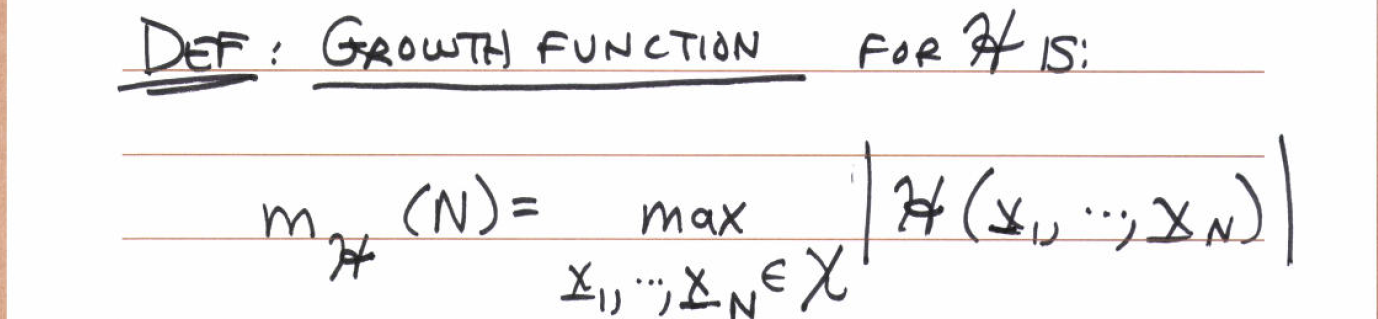 DEF: GROWTH FUNCTION FOR ℋ IS:
m_ℋ (N) = max_{x̲₁, ..., x̲_N ∈ 𝒳} |ℋ(x̲₁, ..., x̲_N)|